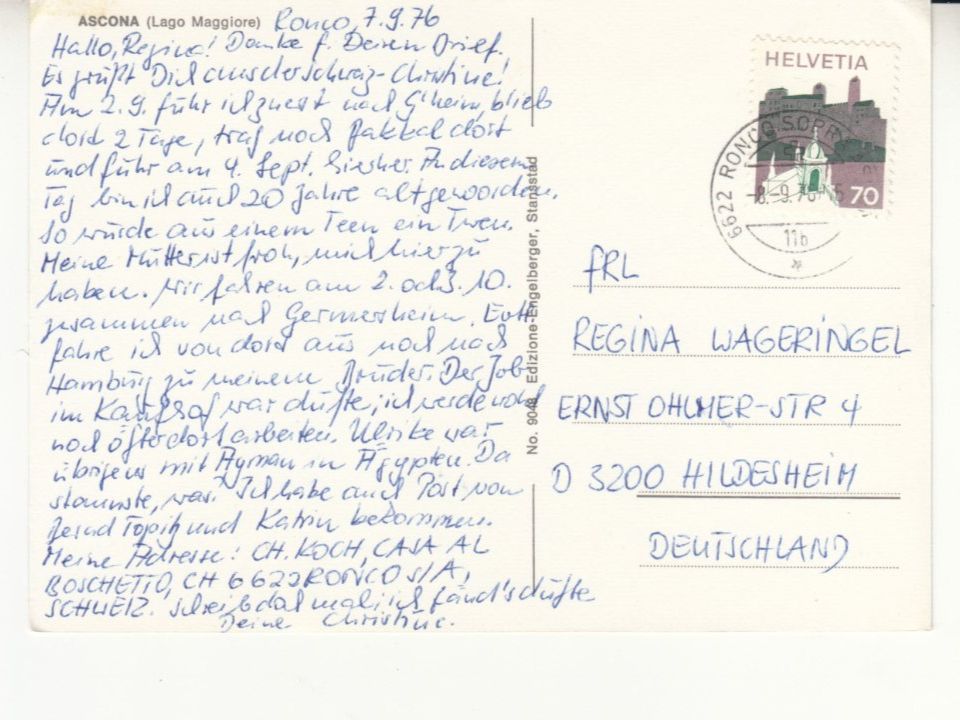 ASCONA (Lago Maggiore) Ronco, 7.9.76
Hallo, Regina! Danke f. Deinen Brief.
Es grüßt Dich aus der Schweiz - Christine!
Am 2.9. fuhr ich zuerst nach G'heim, blieb
dort 2 Tage, traf noch dort
und fuhr am 4. Sept. hierher. An diesem
Tag bin ich auch 20 Jahre alt geworden.
So wurde aus einem Teen ein Twen.
Meine Mutter ist froh, mich hier zu
haben. Wir fahren am 2. od. 3. 10.
zusammen nach Germersheim. Evtl.
fahre ich von dort aus noch nach
Hamburg zu meinem Bruder. Der Job
im Kaufhof war dufte; ich werde wohl
noch öfter dort arbeiten. Ulrike war
übrigens mit Ayman in Ägypten. Da
staunste, was? Ich habe auch Post von
Topitz und Katrin bekommen.
Meine Adresse: CH. KOCH, CASA AL
BOSCHETTO, CH 6622 RONCO S/A,
SCHWEIZ. Schreib doch mal; ich fänd's dufte
Deine Christine.
No. 9048 Edizione-Engelberger, Stansstad
HELVETIA
70
6622 RONCO SOPRA
-8.-9.76
11b
FRL
REGINA WAGERINGEL
ERNST OHLMER-STR 4
D 3200 HILDESHEIM
DEUTSCHLAND